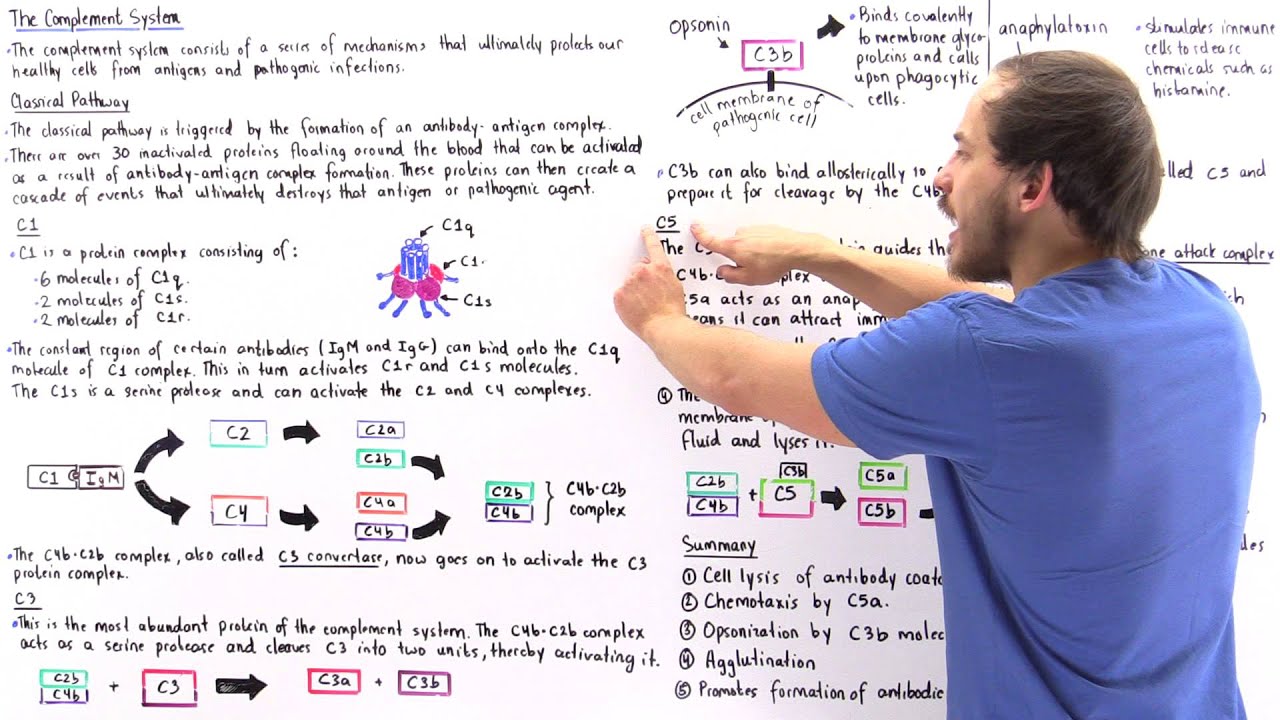 The Complement System
• The complement system consists of a series of mechanisms that ultimately protects our
healthy cells from antigens and pathogenic infections.
Classical Pathway
• The classical pathway is triggered by the formation of an antibody-antigen complex.
• There are over 30 inactivated proteins floating around the blood that can be activated
as a result of antibody-antigen complex formation. These proteins can then create a
cascade of events that ultimately destroys that antigen or pathogenic agent.
C1
• C1 is a protein complex consisting of:
• 6 molecules of C1q.
• 2 molecules of C1s.
• 2 molecules of C1r.
C1q
C1r
C1s
• The constant region of certain antibodies (IgM and IgG) can bind onto the C1q
molecule of C1 complex. This in turn activates C1r and C1s molecules.
The C1s is a serine protease and can activate the C2 and C4 complexes.
C1 IgM
C2
C4
C2a
C2b
C4a
C4b
C2b
C4b
C4b·C2b
complex
• The C4b·C2b complex, also called C3 convertase, now goes on to activate the C3
protein complex.
C3
• This is the most abundant protein of the complement system. The C4b·C2b complex
acts as a serine protease and cleaves C3 into two units, thereby activating it.
C2b
C4b
+ C3
C3a + C3b
Opsonin
C3b
cell membrane of
pathogenic cell
• Binds covalently
to membrane glyco-
proteins and calls
upon phagocytic
cells.
anaphylatoxin
• stimulates immune
cells to release
chemicals such as
histamine.
• C3b can also bind allosterically to
C5 and
prepare it for cleavage by the C4b
C5
The
guides the
attack complex
C4b
C5a acts as an
it can attract
④ The
membrane
fluid and lyses it.
C2b
C4b
+ C3b
C5
C5a
C5b
Summary
① Cell lysis of antibody
② Chemotaxis by C5a.
③ Opsonization by C3b
④ Agglutination
⑤ Promotes formation of